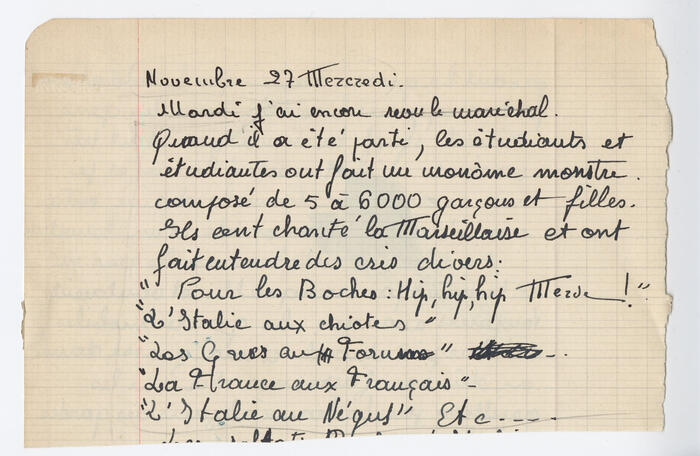 Novembre 27 Mercredi.
Mardi j'ai encore revu le maréchal.
Quand il a été parti, les étudiants et
étudiantes ont fait un monôme monstre.
composé de 5 à 6000 garçons et filles.
Ils ont chanté la Marseillaise et ont
fait entendre des cris divers:
" Pour les Boches: Hip, hip, hip Merde ! "
"L'Italie aux chiotes "
"Les Grecs au Forum " -.
"La France aux Français" -
"L'Italie au Négus" Etc ----